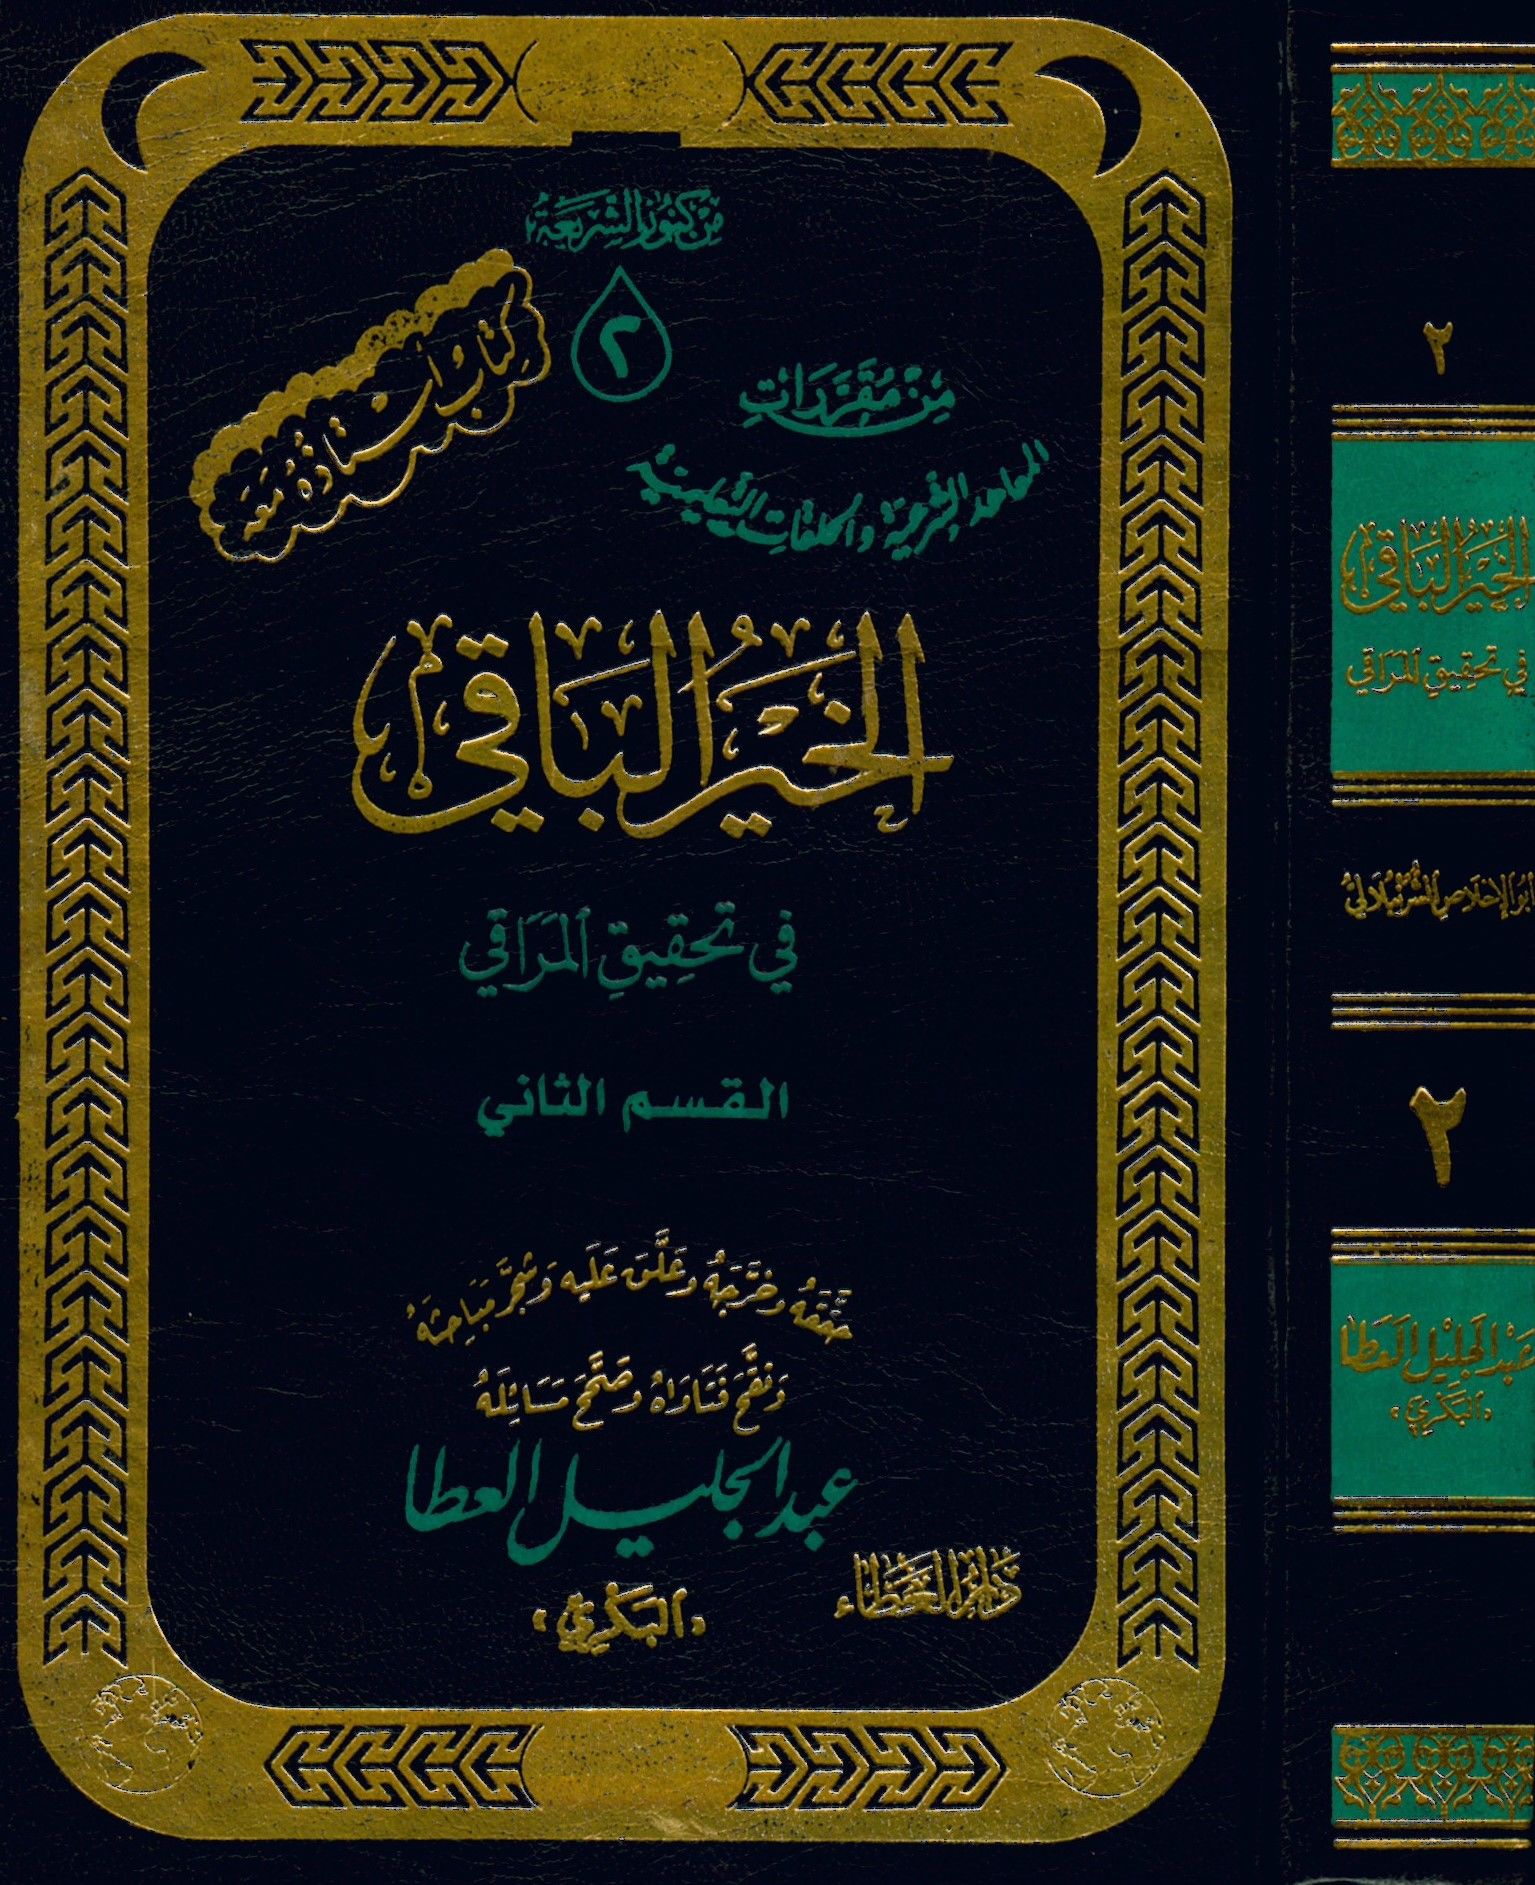 من كنوز الشريعة
٢
كتاب أستاذه معه
من مقررات
المعاهد الشرعية والحلقات التعليمية
الخير الباقي
في تحقيق المراقي
القسم الثاني
حققه وخرجه وعلق عليه وشجر مباحثه
ونقح فتاواه وصحح مسائله
عبد الجليل العطا
«البكري»
دار العطاء
٢
الخير الباقي
في تحقيق المراقي
أبو الإخلاص الشرنبلالي
٢
عبد الجليل العطا
«البكري»